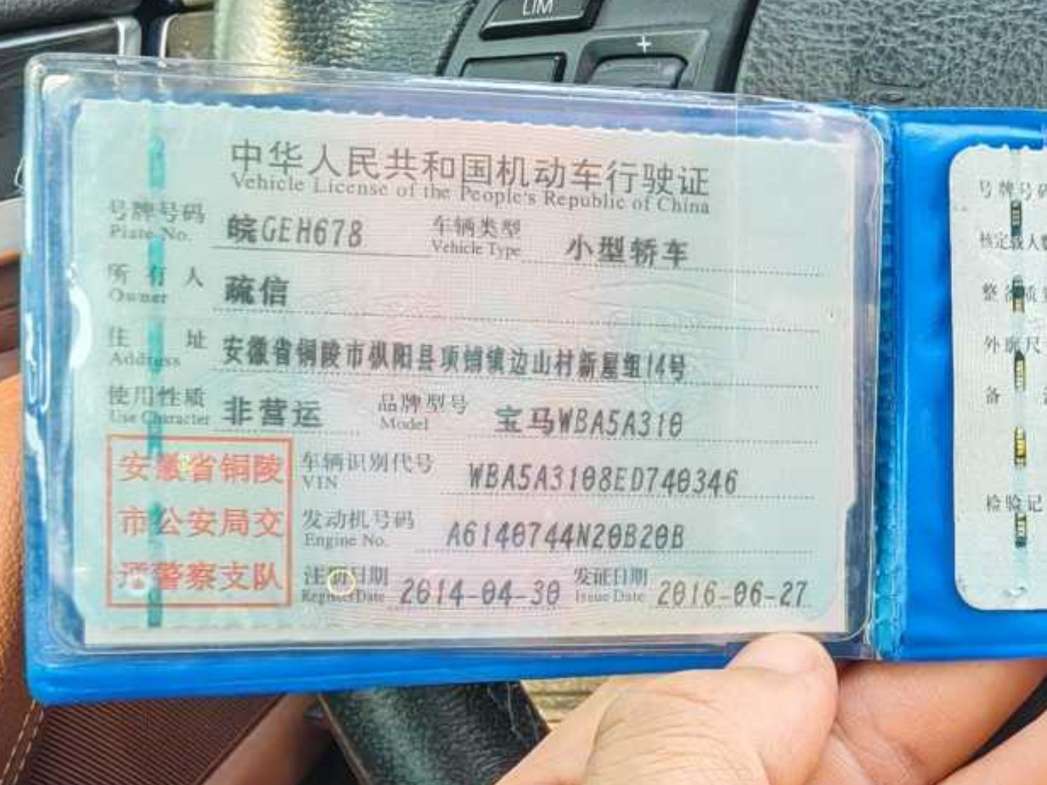 LIM
+
中华人民共和国机动车行驶证
Vehicle License of the People's Republic of China
号牌号码 皖GEH678 车辆类型 小型轿车
Plate No. Vehicle Type
所有人 疏信
Owner
住址 安徽省铜陵市枞阳县项铺镇边山村新屋组14号
Address
使用性质 非营运 品牌型号 宝马WBA5A310
Use Character Model
安徽省铜陵
市公安局交
通警察支队
车辆识别代号 WBA5A3108ED740346
VIN
发动机号码 A6140744N20B20B
Engine No.
注册日期 2014-04-30 发证日期 2016-06-27
Register Date Issue Date
号牌号码
核定载人数
整备质量
外廓尺
备
检验记